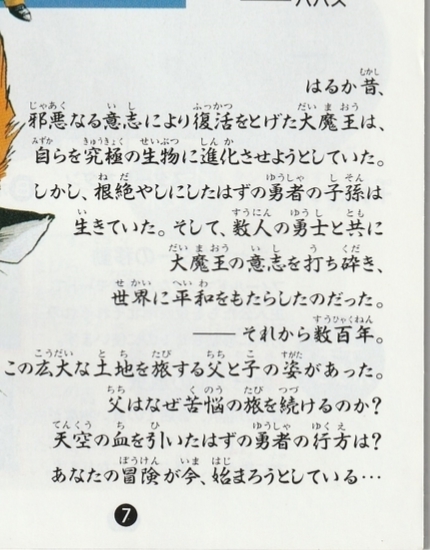 ――パパス
はるか昔、
邪悪なる意志により復活をとげた大魔王は、
自らを究極の生物に進化させようとしていた。
しかし、根絶やしにしたはずの勇者の子孫は
生きていた。そして、数人の勇士と共に
大魔王の意志を打ち砕き、
世界に平和をもたらしたのだった。
――それから数百年。
この広大な土地を旅する父と子の姿があった。
父はなぜ苦悩の旅を続けるのか?
天空の血を引いたはずの勇者の行方は?
あなたの冒険が今、始まろうとしている…
7